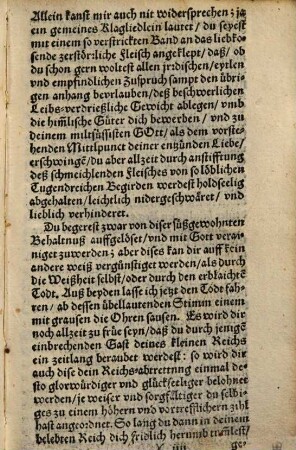 Allein kanst mir auch nit widersprechen / ja
ein gemeines Klagliedlein lautet / du seyest
mit einem so verstrickten Band an das liebko-
sende zerstörrliche Fleisch angeklept / daß / ob
du schon gern woltest allen jrrdischen / eytlen
vnd empfindlichen Zuspruch sampt den übri-
gen anhang beyrlauben / deß beschwerlichen
Leibs-verdrießliche Gewicht ablegen / vmb
die him̃lische Güter dich bewerben / vnd zu
deinem miltsüssisten GOtt / als dem vorste-
henden Mittlpunct deiner entzünden Liebe /
erschwingẽ / du aber allzeit durch anstifftung
deß schmeichlenden Fleisches von so löblichen
Tugendreichen Begirden werdest holdseelig
abgehalten / leichtlich nidergeschwäret / vnd
lieblich verhinderet.
Du begerest zwar von diser süßgewohnten
Behaltnuß auffgelöset / vnd mit Gott verai-
niget zuwerden ; aber dises kan dir auff kein
andere weiß vergünstiget werden / als durch
die Weißheit selbst / oder durch den erblaichtẽ
Todt. Auß beyden lasse ich jetzt den Todt fah-
ren / ab dessen übellautenden Stimm einem
mit grausen die Ohren sausen. Es wird dir
noch allzeit zu frue seyn / daß du durch jenigẽ
einbrechenden Gast deines kleinen Reichs
ein zeitlang beraubet werdest : so wird dir
auch dise dein Reichs-abtrettung einmal de-
sto glorwürdiger vnd glückseeliger belohnet
werden / je weiser vnd sorgfältiger du selbi-
ges zu einem höhern vnd vortrefflichern zihl
hast angeordnet. So lang du dann in deinem
belebten Reich dich fridlich herumb tram̃lest /
ge-